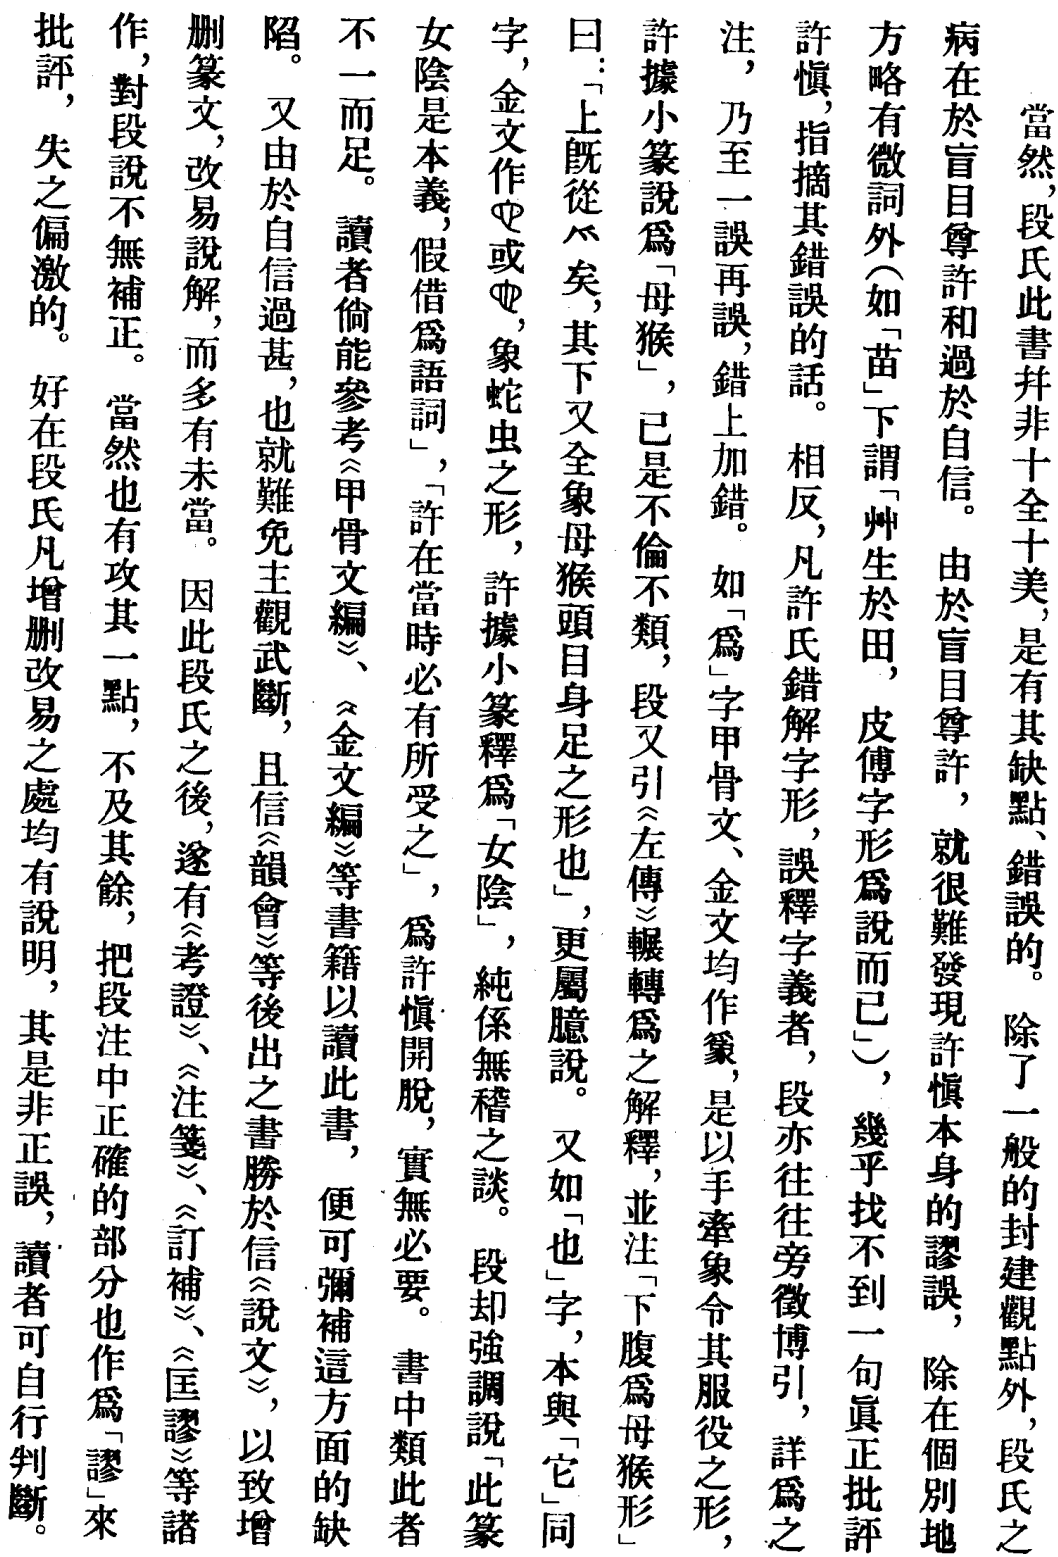 當然,段氏此書幷非十全十美,是有其缺點、錯誤的。除了一般的封建觀點外,段氏之
病在於盲目尊許和過於自信。由於盲目尊許,就很難發現許愼本身的謬誤,除在個別地
方略有微詞外(如「苗」下謂「艸生於田,皮傅字形爲說而已」),幾乎找不到一句眞正批評
許愼,指摘其錯誤的話。相反,凡許氏錯解字形,誤釋字義者,段亦往往旁徵博引,詳爲之
注,乃至一誤再誤,錯上加錯。如「爲」字甲骨文、金文均作,是以手牽象令其服役之形,
許據小篆說爲「母猴」,已是不倫不類,段又引《左傳》輾轉爲之解釋,並注「下腹爲母猴形」
曰:「上旣從爪矣,其下又全象母猴頭目身足之形也」,更屬臆說。又如「也」字,本與「它」同
字,金文作或,象蛇虫之形,許據小篆釋爲「女陰」,純係無稽之談。段却強調說「此篆
女陰是本義,假借爲語詞」,「許在當時必有所受之」,爲許愼開脫,實無必要。書中類此者
不一而足。讀者倘能參考《甲骨文編》、《金文編》等書籍以讀此書,便可彌補這方面的缺
陷。又由於自信過甚,也就難免主觀武斷,且信《韻會》等後出之書勝於信《說文》,以致增
删篆文,改易說解,而多有未當。因此段氏之後,遂有《考證》、《注箋》、《訂補》、《匡謬》等諸
作,對段說不無補正。當然也有攻其一點,不及其餘,把段注中正確的部分也作爲「謬」來
批評,失之偏激的。好在段氏凡增删改易之處均有說明,其是非正誤,讀者可自行判斷。